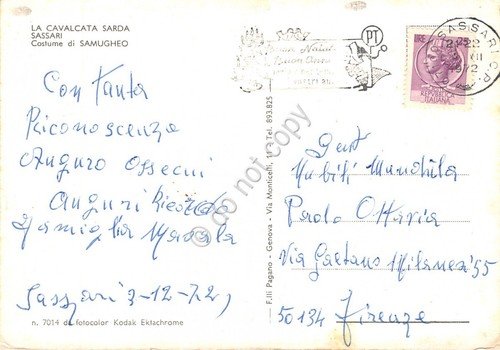 LA CAVALCATA SARDA
SASSARI
Costume di SAMUGHEO
Con tanta
Riconoscenza
Auguro Ossequi
Auguri
Famiglia
Sassari 3-12-72
n. 7014 da fotocolor Kodak Ektachrome
F.lli Pagano - Genova - Via Monticelli, 11 Tel. 893.825
Buon Natale
Buon Anno
PT
SASSARI C.P.
LIRE 25
REPUBBLICA
ITALIANA
do not copy
Gent
Nubili
Paolo Ottavia
Via Gaetano Milanesi 55
50134 Firenze